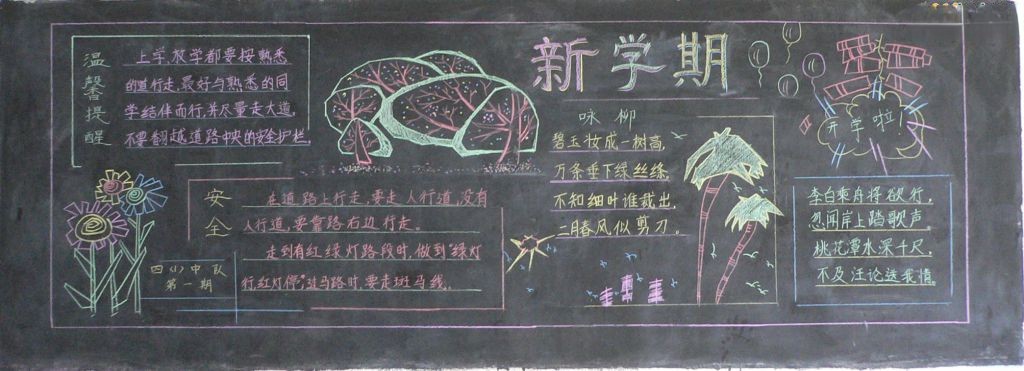 温馨提醒
上学放学都要按熟悉
的道行走,最好与熟悉的同
学结伴而行,并尽量走大道,
不要翻越道路中央的安全护栏.
安全
在道路上行走,要走人行道,没有
人行道,要靠路右边行走。
走到有红绿灯路段时,做到“绿灯
行,红灯停”,过马路时,要走斑马线。
四(1)中队
第一期
新学期
咏柳
碧玉妆成一树高,
万条垂下绿丝绦,
不知细叶谁裁出,
二月春风似剪刀。
开学啦!
李白乘舟将欲行,
忽闻岸上踏歌声。
桃花潭水深千尺,
不及汪论送我情。